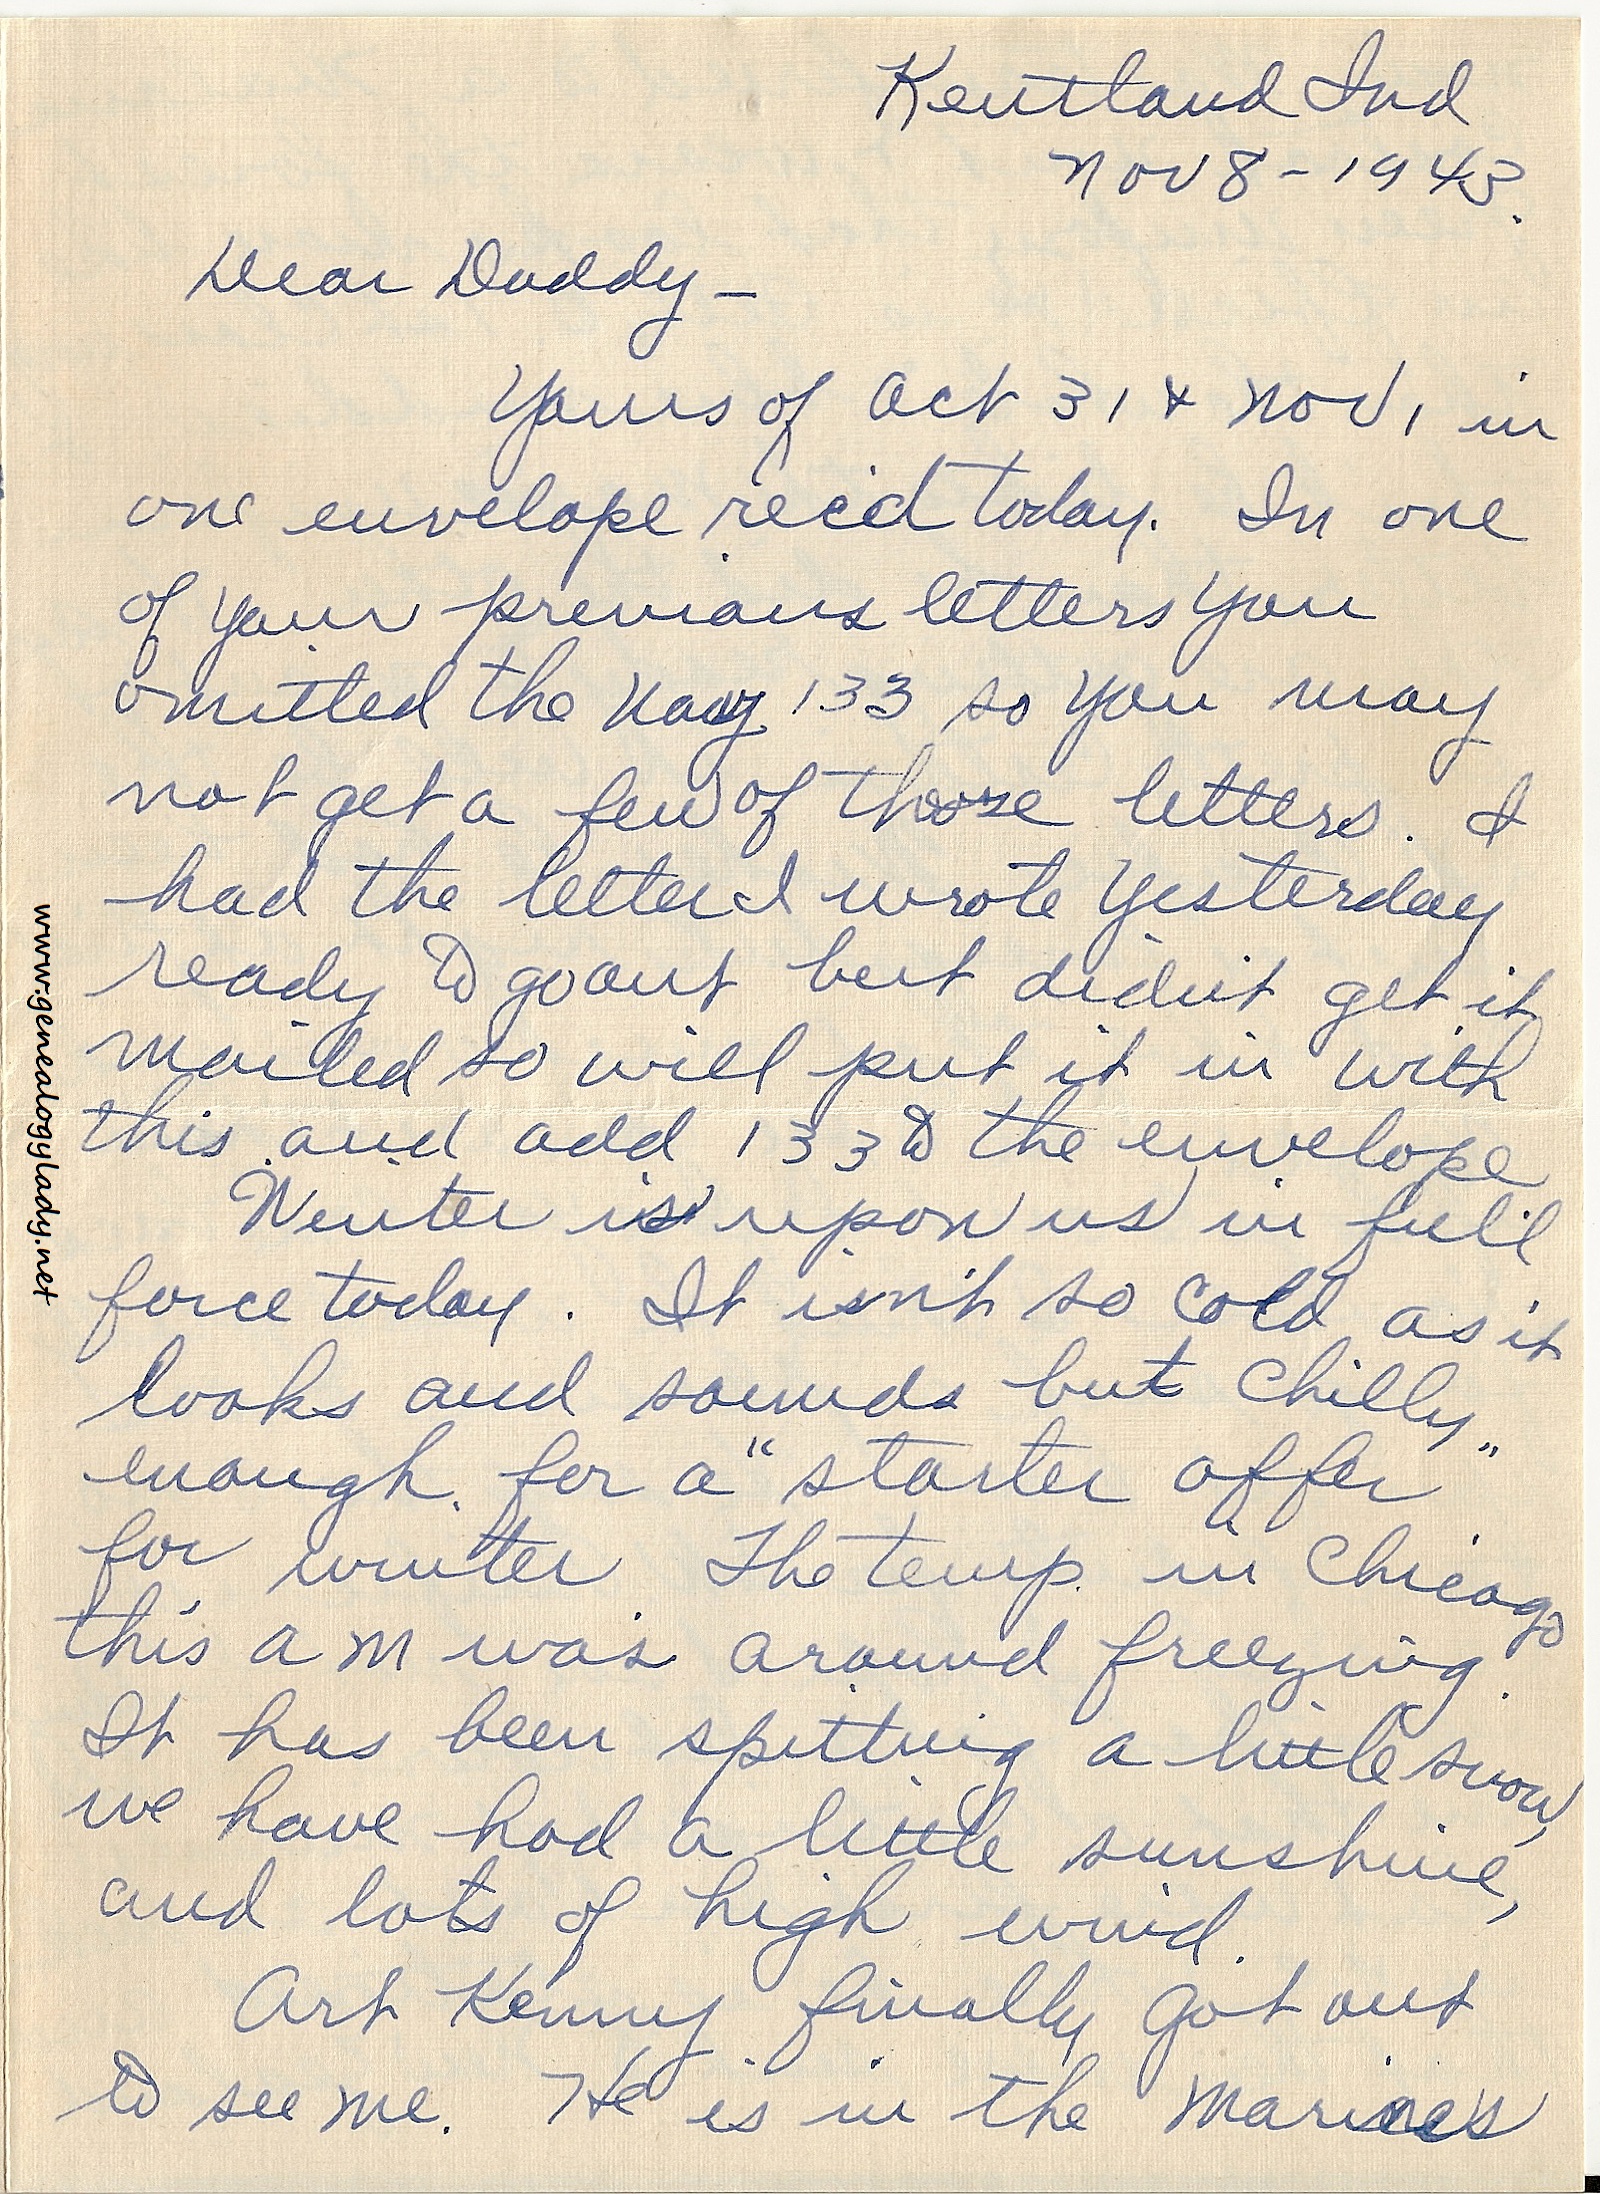 Kentland Ind
Nov 8 - 1943.
Dear Daddy -
Yours of Oct 31 & Nov 1 in
one envelope rec'd today. In one
of your previous letters you
omitted the Navy 133 so you may
not get a few of those letters. I
had the letter I wrote yesterday
ready to go out but didn't get it
mailed so will put it in with
this and add 133 to the envelope
Winter is upon us in full
force today. It isn't so cold as it
looks and sounds but chilly
enough for a "starter offer"
for winter The temp. in Chicago
this a m was around freezing.
It has been spitting a little snow,
we have had a little sunshine,
and lots of high wind.
Art Kenny finally got out
to see me. He is in the Marines
www.genealogylady.net